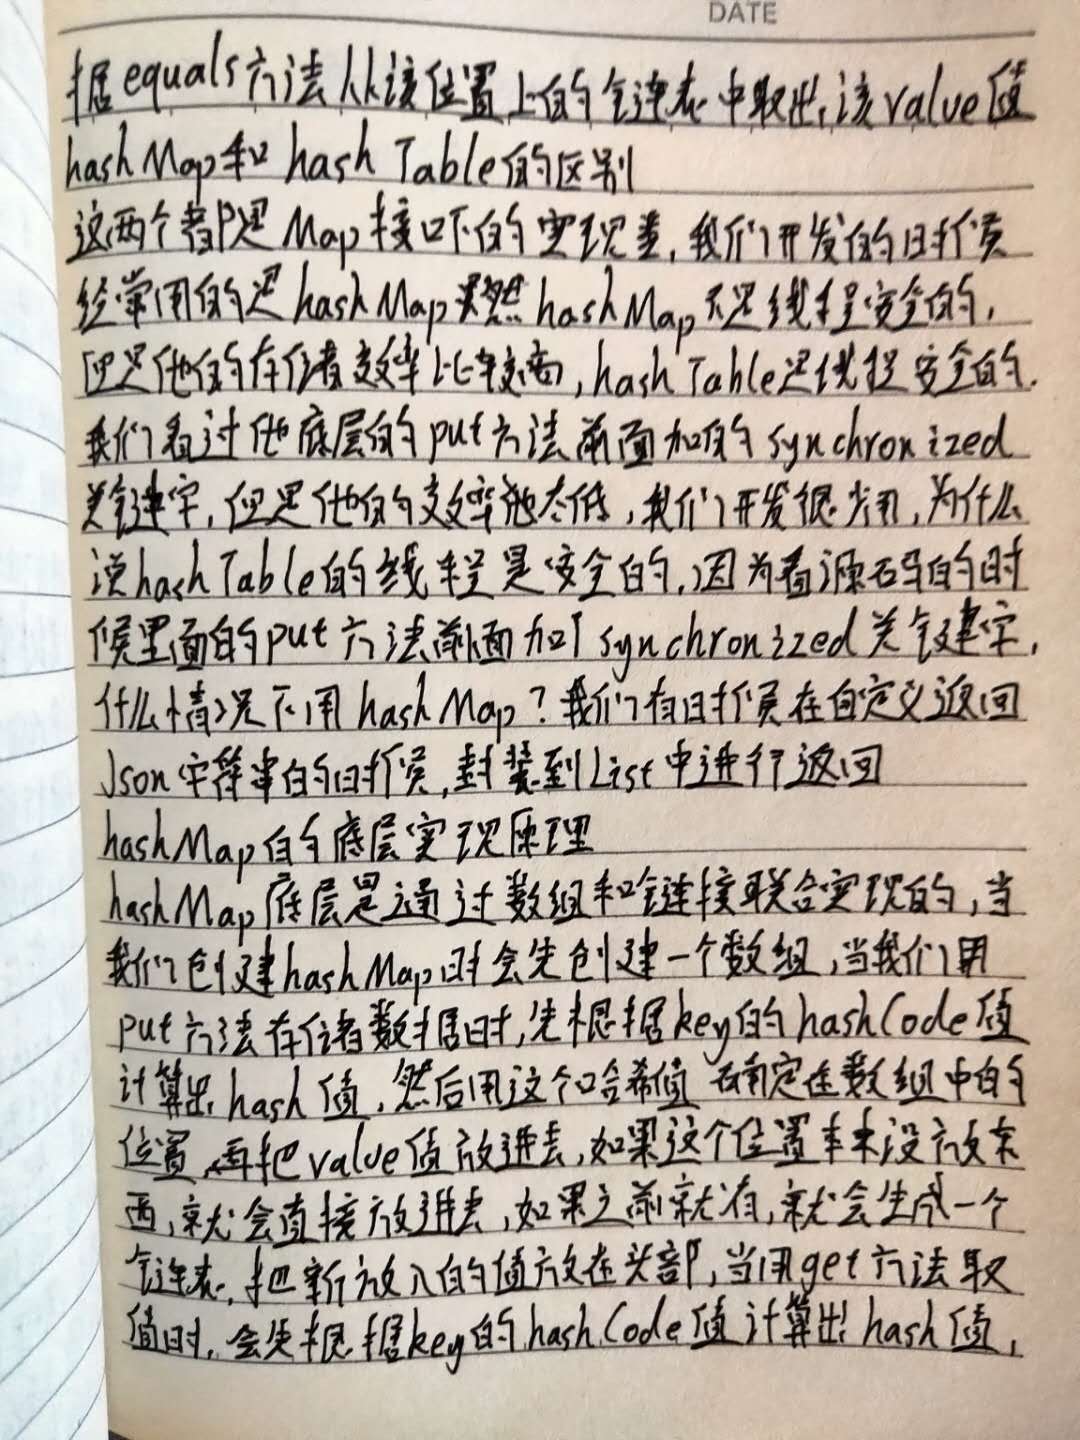 DATE
据equals方法从该位置上的链表中取出,该value值
hashMap和hashTable的区别
这两个都是Map接口下的实现类,我们开发的时候
经常用的是hashMap虽然hashMap不是线程安全的,
但是他的存储效率比较高,hashTable是线程安全的.
我们看过他底层的put方法前面加的synchronized
关键字,但是他的效率他太低,我们开发很少用,为什么
说hashTable的线程是安全的,因为看源码的时
候里面的put方法前面加了synchronized关键字,
什么情况下用hashMap?我们有时候在自定义返回
Json字符串的时候,封装到List中进行返回
hashMap的底层实现原理
hashMap底层是通过数组和链接联合实现的,当
我们创建hashMap时会先创建一个数组,当我们用
put方法存储数据时,先根据key的hashCode值
计算出hash值,然后用这个哈希值确定在数组中的
位置,再把value值放进去,如果这个位置本来没放东
西,就会直接放进去,如果之前就有,就会生成一个
链表,把新放入的值放在头部,当用get方法取
值时,会先根据key的hashCode值计算出hash值,